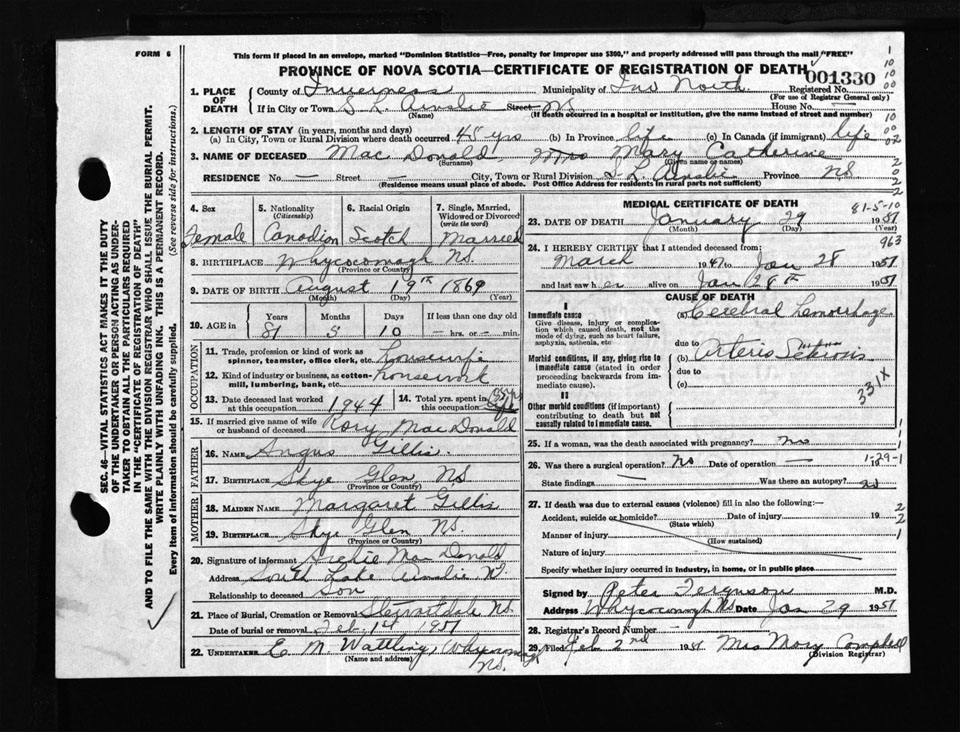 FORM 6
This form if placed in an envelope, marked "Dominion Statistics—Free, penalty for improper use $300," and properly addressed will pass through the mail "FREE"
PROVINCE OF NOVA SCOTIA—CERTIFICATE OF REGISTRATION OF DEATH
001330
1. PLACE OF DEATH
County of Inverness Municipality of Inv North Registered No.
(For use of Registrar General only)
If in City or Town S L. Ainslie Street NS House No. —
(Name) (If death occurred in a hospital or institution, give the name instead of street and number)
2. LENGTH OF STAY (in years, months and days)
(a) In City, Town or Rural Division where death occurred 45 yrs (b) In Province life (c) In Canada (if immigrant) life
3. NAME OF DECEASED Mac Donald Mrs Mary Catherine
(Surname) (Given names or names)
RESIDENCE No. — Street — City, Town or Rural Division S. L. Ainslie Province NS
(Residence means usual place of abode. Post Office Address for residents in rural parts not sufficient)
4. Sex Female
5. Nationality (Citizenship) Canadian
6. Racial Origin Scotch
7. Single, Married, Widowed or Divorced (write the word) Married
8. BIRTHPLACE Whycocomagh NS.
(Province or Country)
9. DATE OF BIRTH August 19th 1869
(Month) (Day) (Year)
10. AGE in Years 81 Months 5 Days 10 If less than one day old — hrs. or — min.
OCCUPATION
11. Trade, profession or kind of work as spinner, teamster, office clerk, etc. housewife
12. Kind of industry or business, as cotton-mill, lumbering, bank, etc. housework
13. Date deceased last worked at this occupation 1944
14. Total yrs. spent in this occupation
15. If married give name of wife or husband of deceased Rory MacDonald
FATHER
16. NAME Angus Gillis
17. BIRTHPLACE Skye Glen NS
(Province or Country)
MOTHER
18. MAIDEN NAME Margaret Gillis
19. BIRTHPLACE Skye Glen NS.
(Province or Country)
20. Signature of informant Archie MacDonald
Address South Lake Ainslie NS
Relationship to deceased Son
21. Place of Burial, Cremation or Removal Stewartdale NS.
Date of burial or removal Feb. 1st 1951
22. UNDERTAKER E M Wattling, Whycocomagh NS.
(Name and address)
MEDICAL CERTIFICATE OF DEATH
81-5-10
23. DATE OF DEATH January 29 1951
(Month) (Day) (Year)
963
24. I HEREBY CERTIFY that I attended deceased from:
March 1947 to Jan 28 1951
and last saw her alive on Jan 28th 1951
CAUSE OF DEATH
I
Immediate cause
Give disease, injury or complication which caused death, not the mode of dying, such as heart failure, asphyxia, asthenia, etc
(a) Cerebral hemorrhage
due to
Morbid conditions, if any, giving rise to immediate cause (stated in order proceeding backwards from immediate cause).
(b) Arterio Sclerosis
due to
(c)
331X
II
Other morbid conditions (if important) contributing to death but not causally related to immediate cause.
25. If a woman, was the death associated with pregnancy? no
26. Was there a surgical operation? No Date of operation — 19
1-29-1
State findings — Was there an autopsy? no
27. If death was due to external causes (violence) fill in also the following:—
Accident, suicide or homicide? Date of injury 19
(State which)
Manner of injury
(How sustained)
Nature of injury
Specify whether injury occurred in industry, in home, or in public place
Signed by Peter Ferguson M.D.
Address Whycocomagh NS Date Jan 29 1951
28. Registrar's Record Number —
29. Filed Feb 2nd 1951 Mrs Mary Campbell
(Division Registrar)
SEC. 46—VITAL STATISTICS ACT MAKES IT THE DUTY OF THE UNDERTAKER OR PERSON ACTING AS UNDERTAKER TO OBTAIN ALL THE PARTICULARS REQUIRED IN THE "CERTIFICATE OF REGISTRATION OF DEATH" AND TO FILE THE SAME WITH THE DIVISION REGISTRAR WHO SHALL ISSUE THE BURIAL PERMIT.
WRITE PLAINLY WITH UNFADING INK. THIS IS A PERMANENT RECORD.
Every item of information should be carefully supplied. (See reverse side for instructions.)